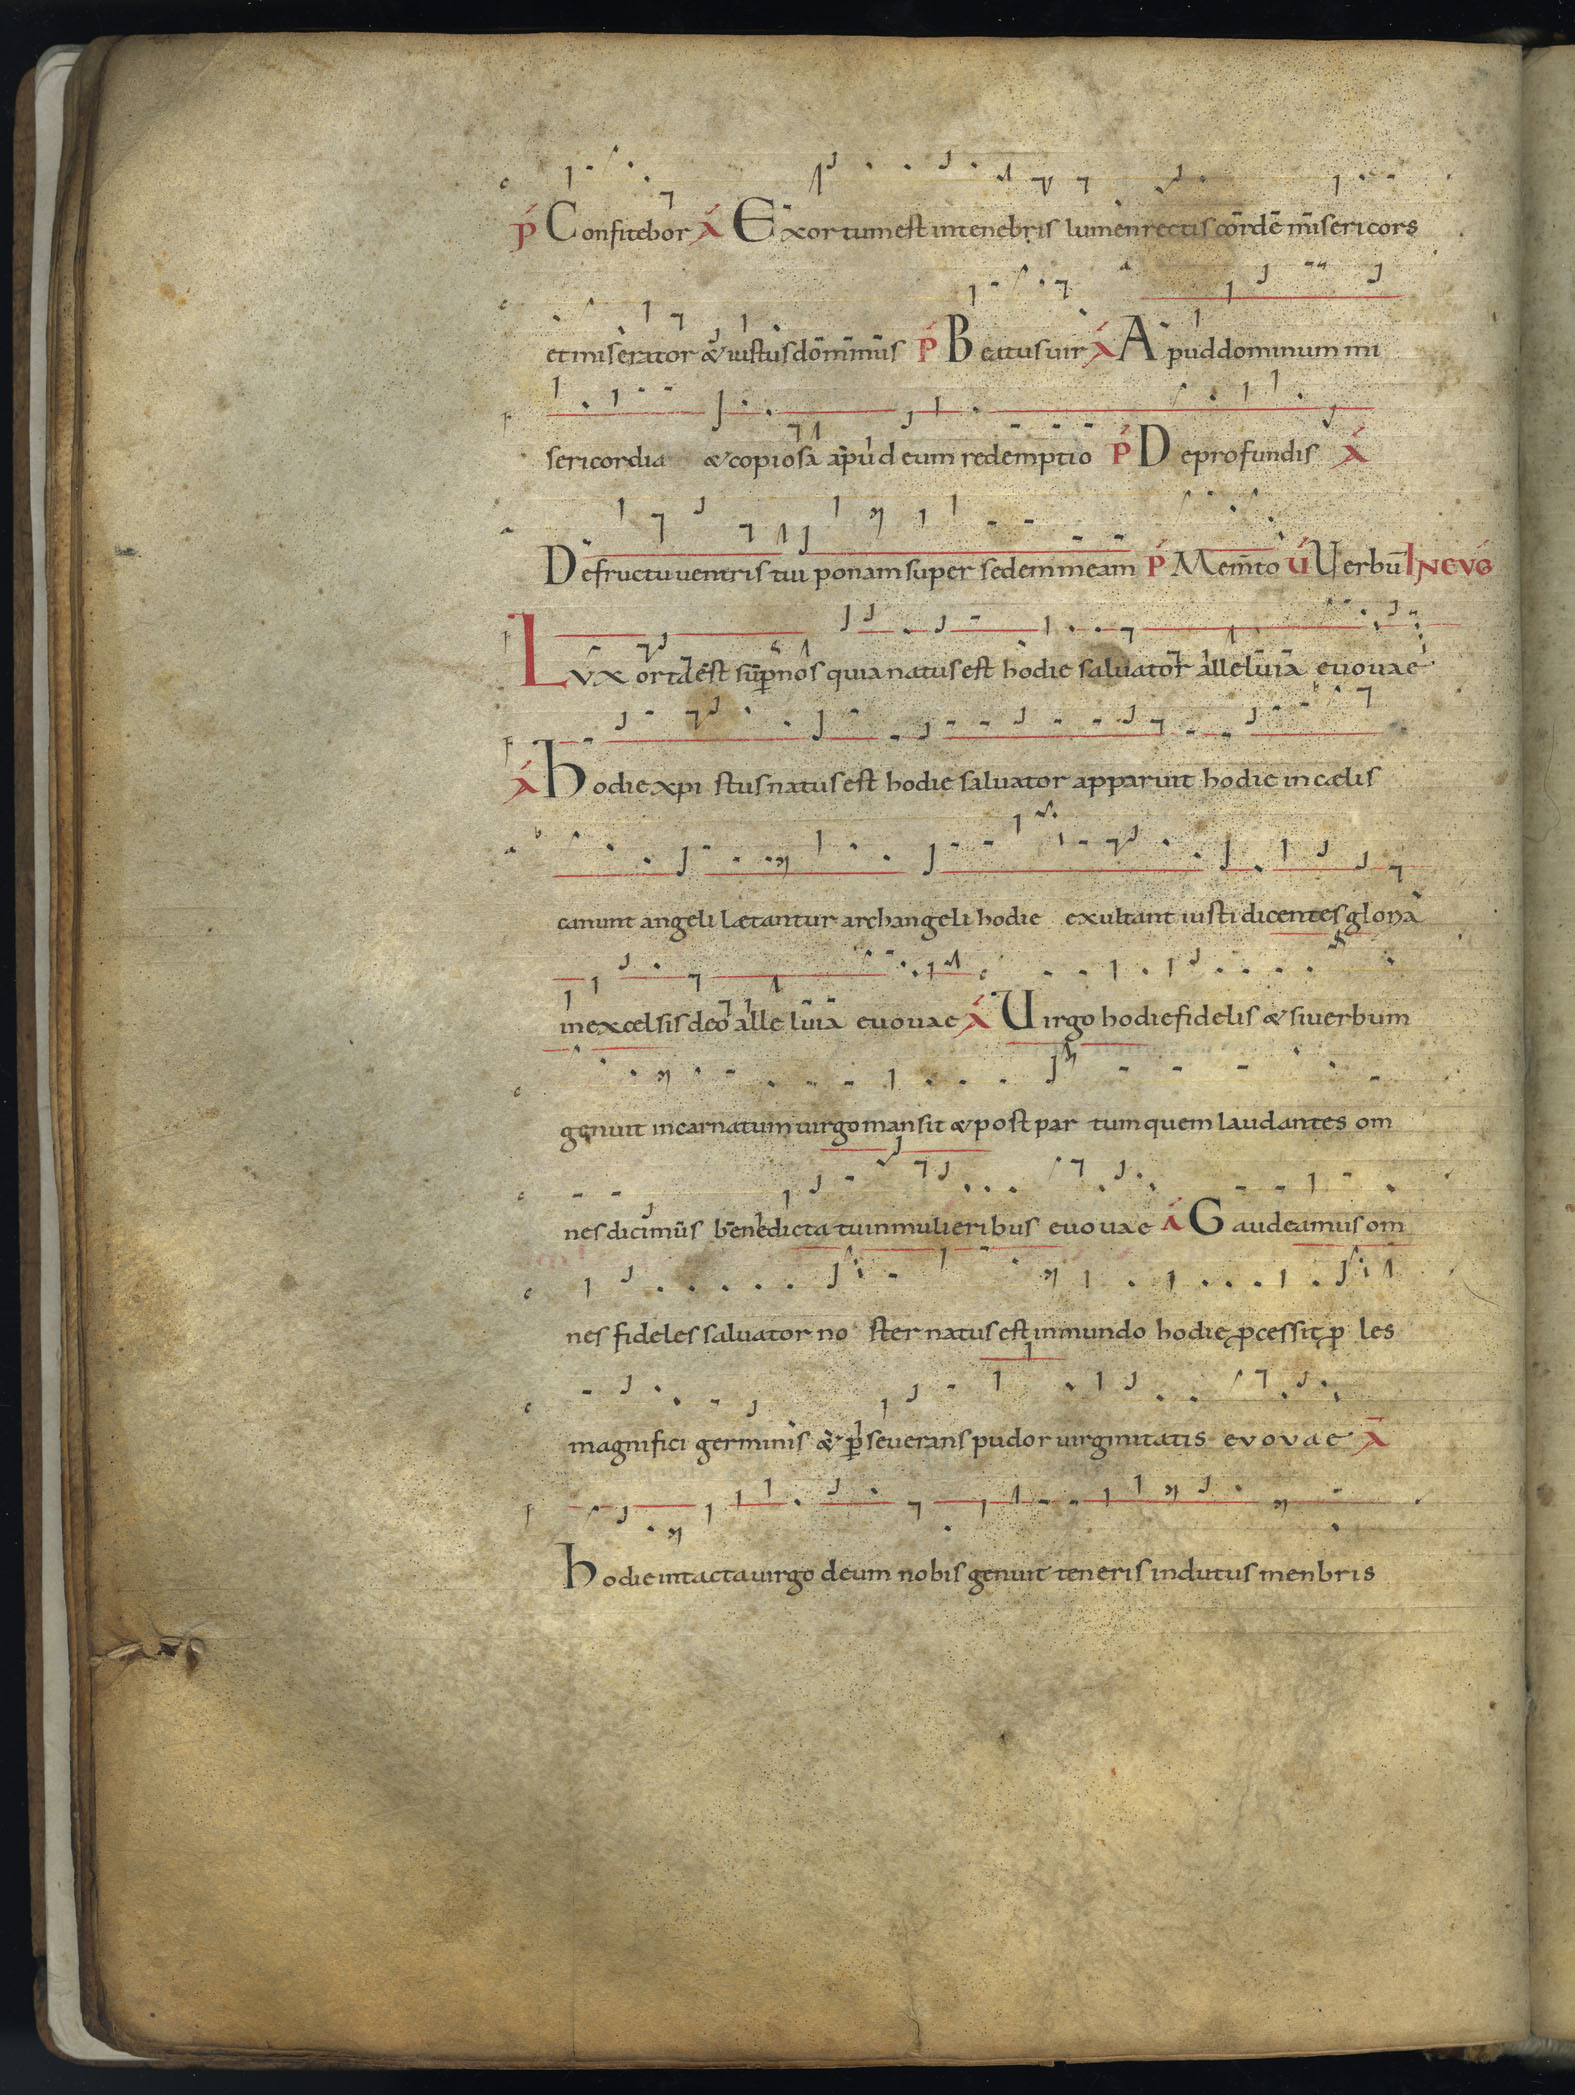 P̄ Confitebor Ā Exortum est in tenebris lumen rectis corde misericors
et miserator & iustus dominus P̄ Beatus uir Ā Apud dominum mi
sericordia & copiosa apud eum redemptio P̄ De profundis Ā
De fructu uentris tui ponam super sedem meam P̄ Mem̄to Ū Uerbū IN EVḠ
LVX orta est sup nos quia natus est hodie saluator alleluia euouae
Ā hodie xpi stus natus est hodie saluator apparuit hodie in cælis
canunt angeli lætantur archangeli hodie exultant iusti dicentes gloriā
in excelsis deo alle luia euouae Ā Uirgo hodie fidelis & si uerbum
genuit incarnatum uirgo mansit & post par tum quem laudantes om
nes dicimus benedicta tu in mulieribus euouae Ā Gaudeamus om
nes fideles saluator no ster natus est in mundo hodie pcessit p les
magnifici germinis & pseuerans pudor uirginitatis evovae Ā
hodie intacta uirgo deum nobis genuit teneris indutus menbris